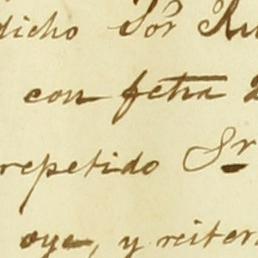 dicho Sor
con fetra
repetido Sr
oye, y reiter